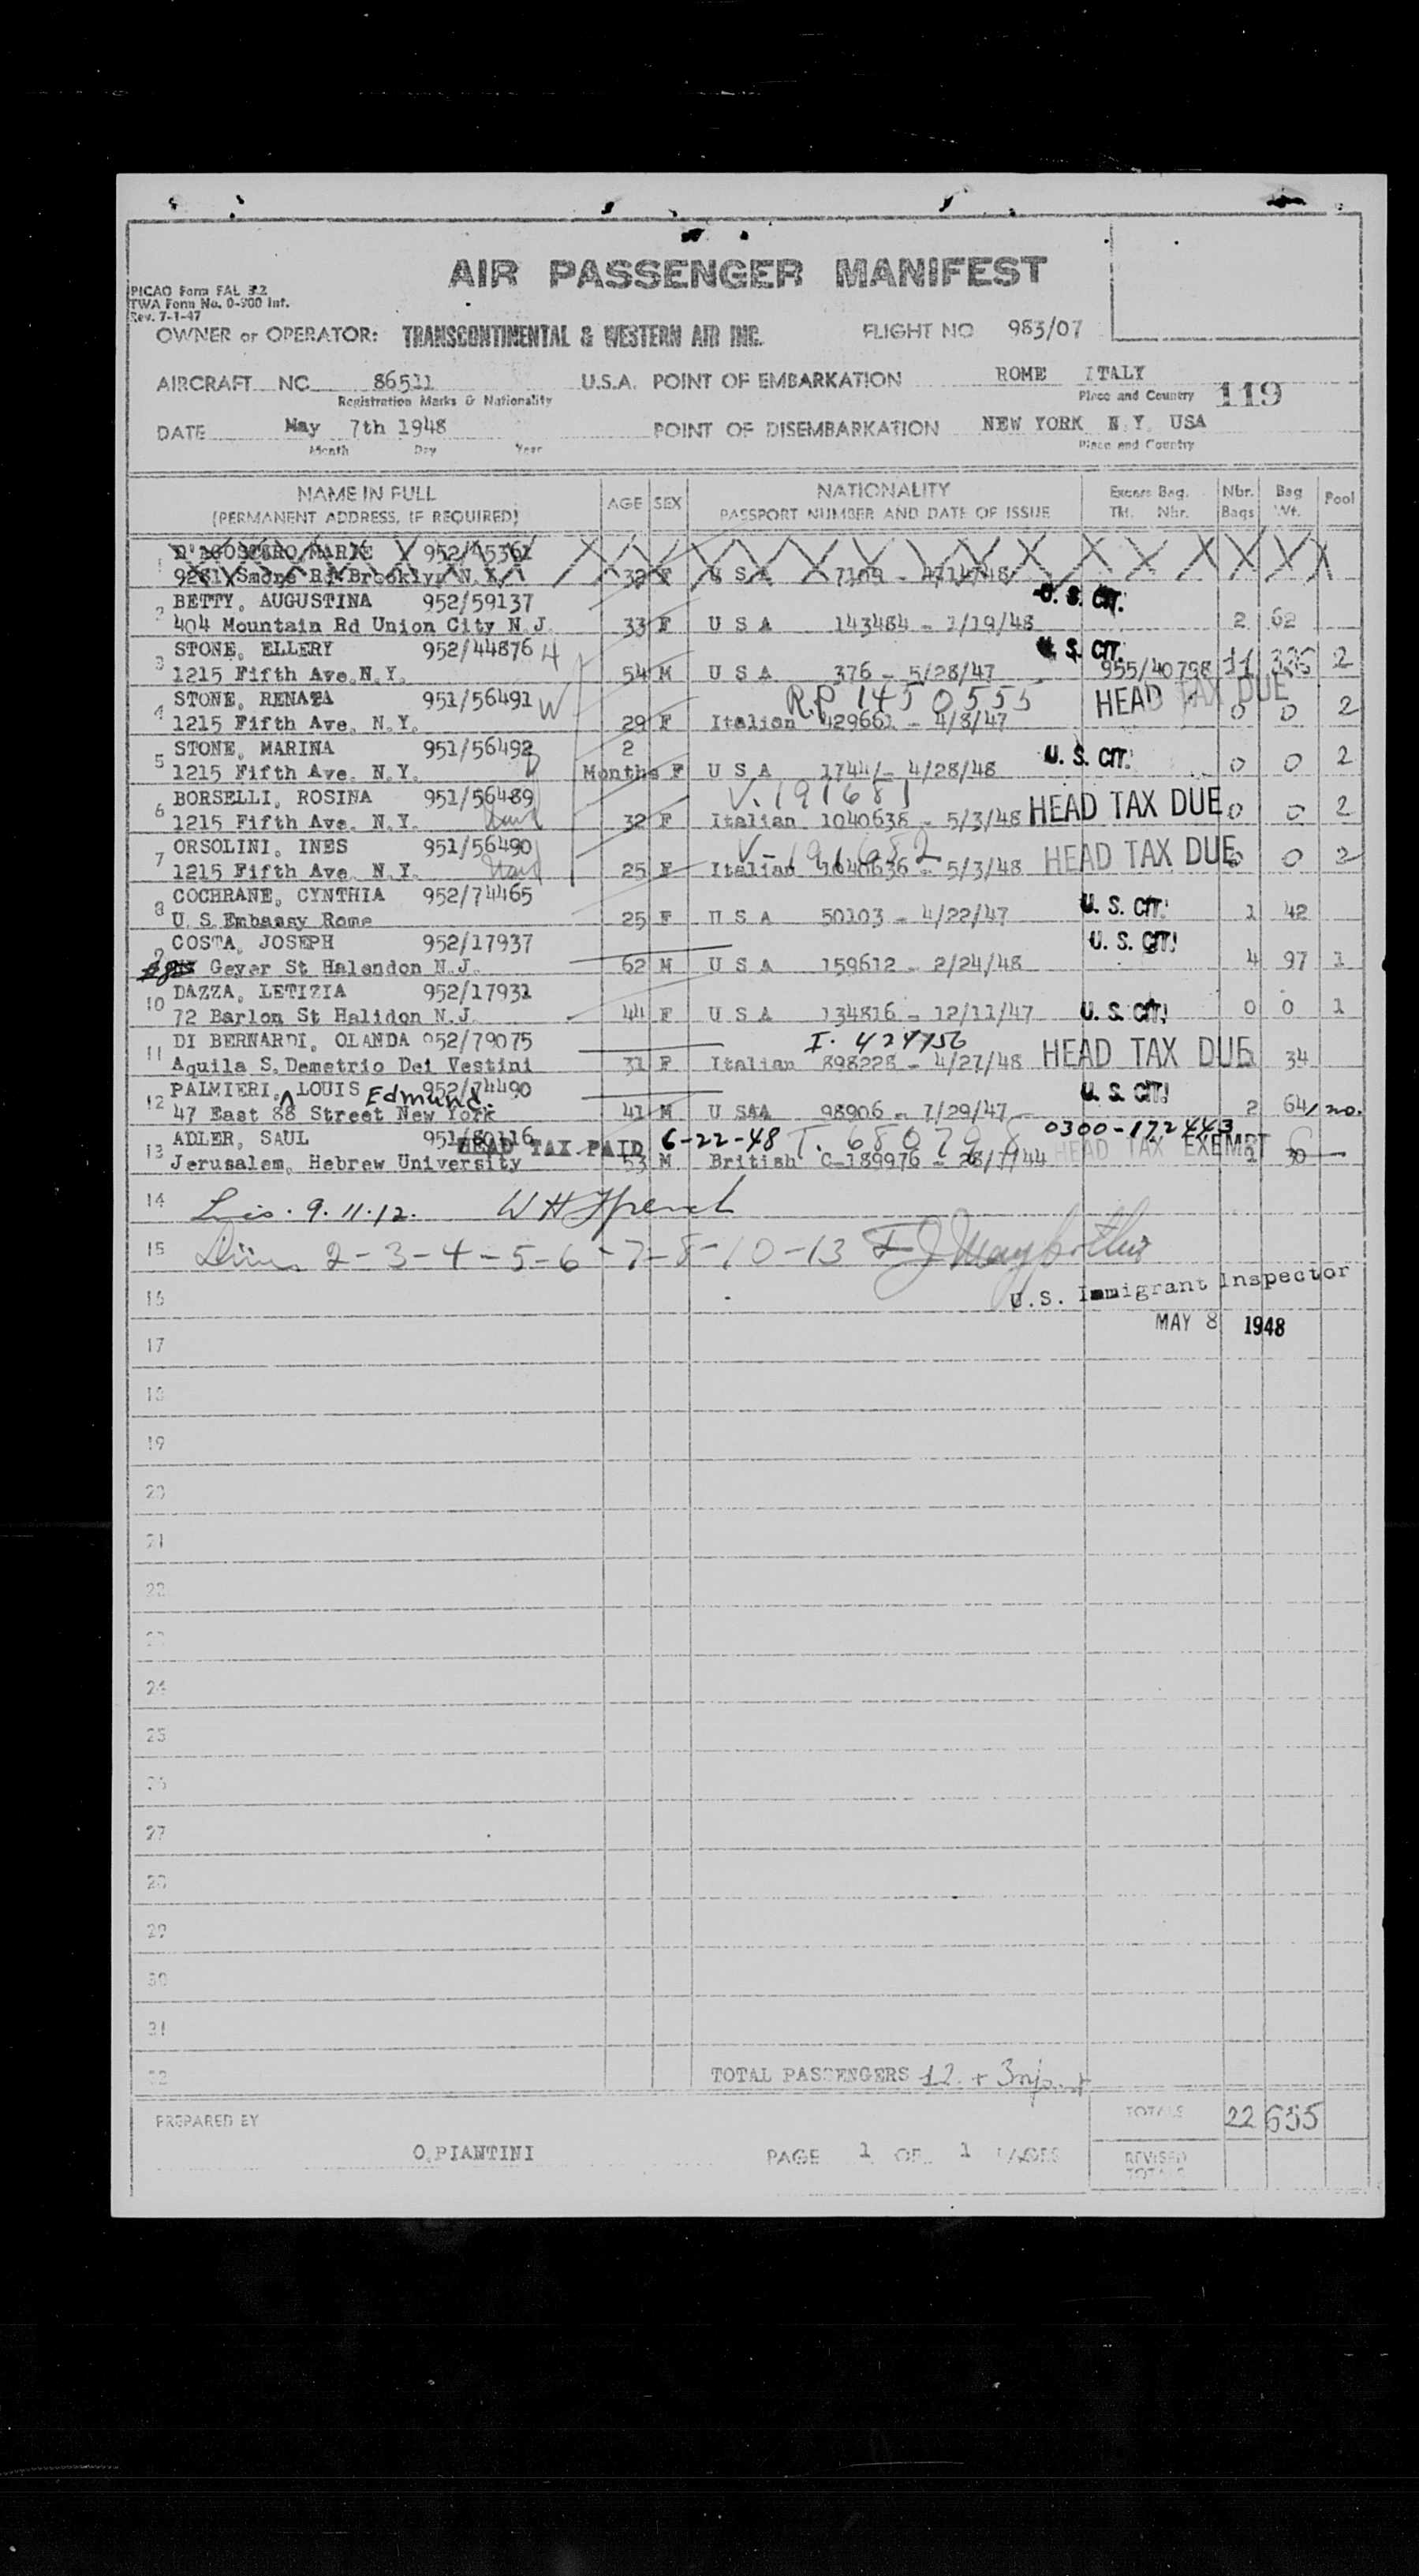 AIR PASSENGER MANIFEST
PICAO Form FAL 3.2
TWA Form No. 0-900 Int.
Rev. 7-1-47
OWNER or OPERATOR: TRANSCONTINENTAL & WESTERN AIR INC. FLIGHT NO 983/07
AIRCRAFT NC 86511 U.S.A. POINT OF EMBARKATION ROME ITALY
Registration Marks & Nationality Place and Country 119
DATE May 7th 1948 POINT OF DISEMBARKATION NEW YORK N.Y. USA
Month Day Year Place and Country
NAME IN FULL AGE SEX NATIONALITY Excess Bag. Nbr. Bag Pool
(PERMANENT ADDRESS, IF REQUIRED) PASSPORT NUMBER AND DATE OF ISSUE Tkt. Nbr. Bags Wt.
1 MARIE
Rd. Brooklyn N.Y. 32 F U S A
2 BETTY, AUGUSTINA 952/59137 U. S. CIT.
404 Mountain Rd Union City N.J. 33 F U S A 143484 - 1/19/48 2 62
3 STONE, ELLERY 952/44876 H U. S. CIT.
1215 Fifth Ave.N.Y. 54 M U S A 376 - 5/28/47 955/40798 11 2
4 STONE, RENATA 951/56491 W R.P 1450555 HEAD TAX DUE
1215 Fifth Ave, N.Y. 29 F Italian 429661 - 4/8/47 0 0 2
5 STONE, MARINA 951/56492 D 2 U. S. CIT.
1215 Fifth Ave. N.Y. Months F U S A 1744/- 4/28/48 0 0 2
6 BORSELLI, ROSINA 951/56489 V. 191681 HEAD TAX DUE
1215 Fifth Ave. N.Y. 32 F Italian 1040638 - 5/3/48 0 0 2
7 ORSOLINI, INES 951/56490 V-191682 HEAD TAX DUE
1215 Fifth Ave. N.Y. 25 F Italian 1040636 - 5/3/48 0 0 2
8 COCHRANE, CYNTHIA 952/74465 U. S. CIT.
U.S.Embassy Rome 25 F U S A 50103 - 4/22/47 1 42
9 COSTA, JOSEPH 952/17937 U. S. CIT.
Geyer St Halendon N.J. 62 M U S A 159612 - 2/24/48 4 97 1
10 DAZZA, LETIZIA 952/17931
72 Barlon St Halidon N.J. 44 F U S A 134816 - 12/11/47 U. S. CIT. 0 0 1
11 DI BERNARDI, OLANDA 952/79075 I. 424756 HEAD TAX DUE
Aquila S.Demetrio Dei Vestini 31 F Italian 898228 - 4/27/48 34
12 PALMIERI, LOUIS Edmund. 952/74490 U. S. CIT.
47 East 88 Street New York 41 M U SAA 98906 - 7/29/47 2 64/ no.
13 ADLER, SAUL 951/80116 HEAD TAX PAID 6-22-48 T. 0300-172443 HEAD TAX EXEMPT
Jerusalem, Hebrew University 53 M British C-189976 - 28/7/44 30
14 9. 11. 12. W H French
15 2-3-4-5-6-7-8-10-13
16 U.S. Immigrant Inspector
17 MAY 8 1948
18
19
20
21
22
23
24
25
26
27
28
29
30
31
32 TOTAL PASSENGERS 12 + 3
PREPARED BY TOTALS 22 655
O.PIANTINI PAGE 1 OF 1 PAGES REVISED
TOTALS